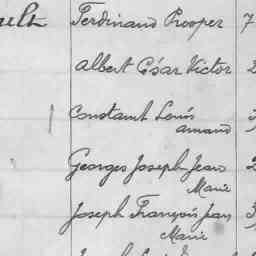 ult Ferdinand Prosper 7
Albert César Victor 2
Constant Louis 3
Amand
Georges Joseph Jean 2
Marie
Joseph François Jean 3
Marie